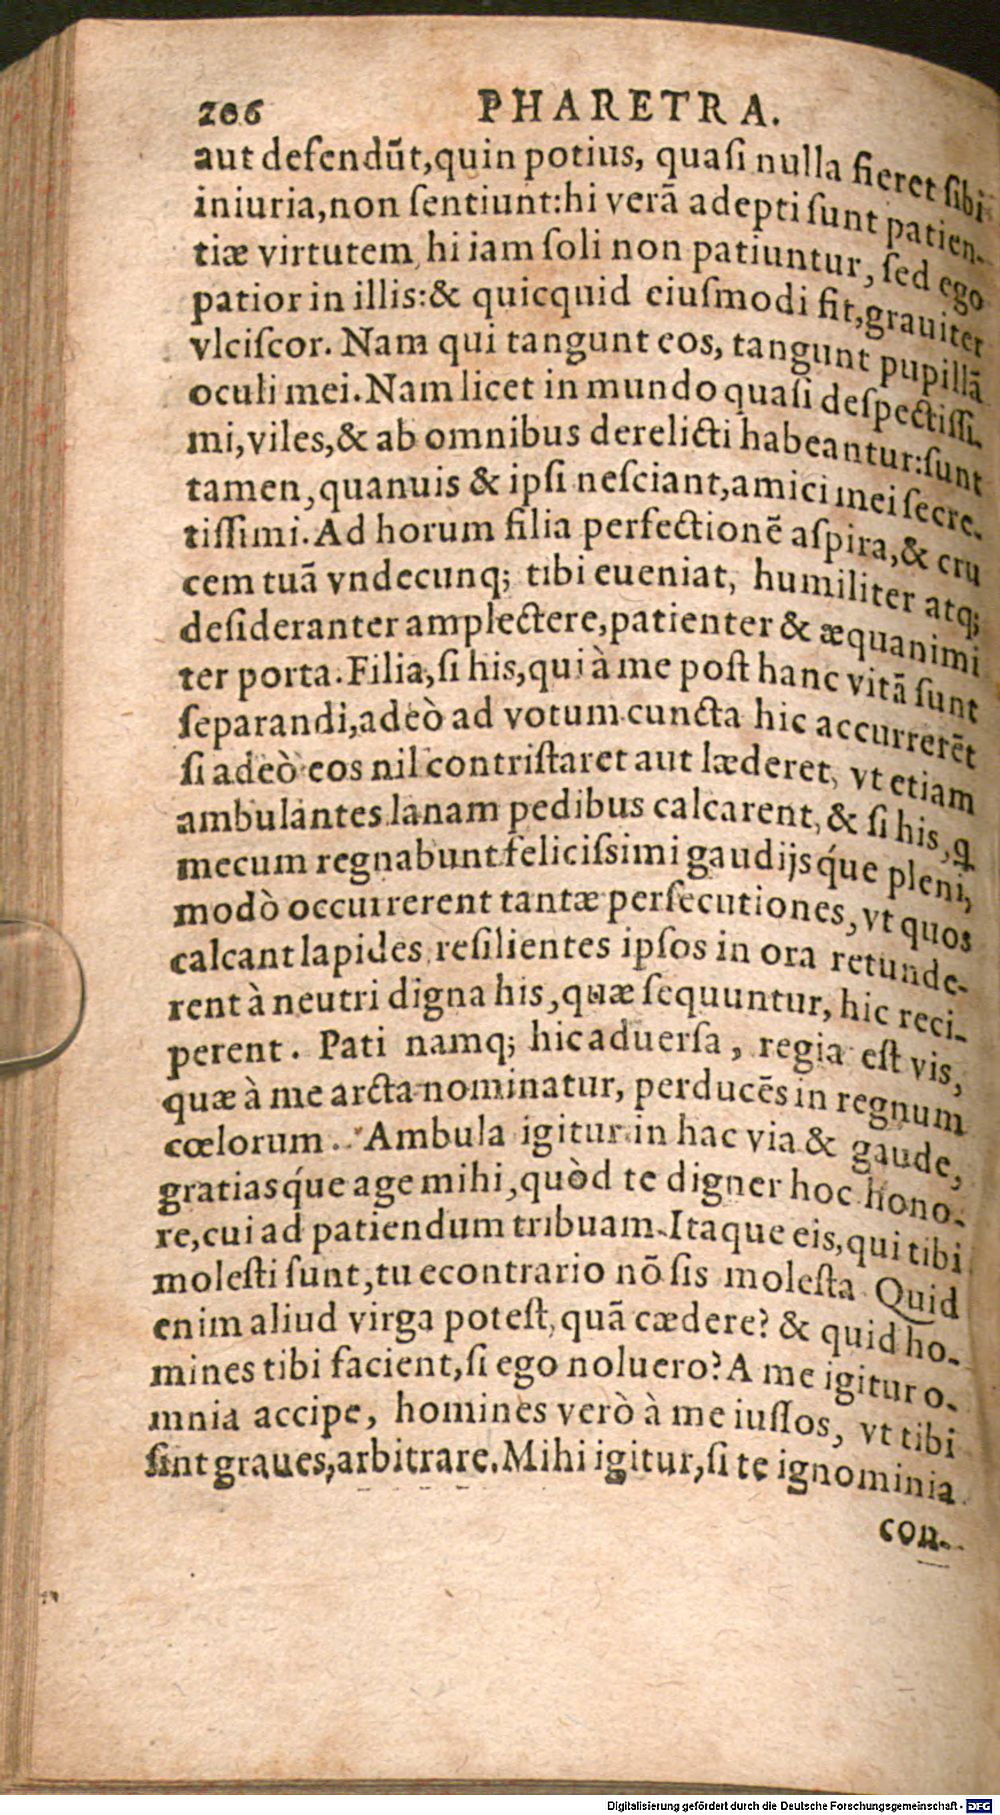 206 PHARETRA.
aut defendūt,quin potius, quaſi nulla fieret ſibi
iniuria,non ſentiunt:hi verā adepti ſunt patien-
tiæ virtutem, hi iam ſoli non patiuntur, ſed ego
patior in illis:& quicquid eiuſmodi fit,grauiter
vlciſcor. Nam qui tangunt eos, tangunt pupillā
oculi mei. Nam licet in mundo quaſi deſpectiſſi-
mi,viles,& ab omnibus derelicti habeantur:ſunt
tamen,quanuis & ipſi neſciant,amici mei ſecre-
tiſſimi. Ad horum filia perfectionē aſpira,& cru
cem tuā vndecunq; tibi eueniat, humiliter atq;
deſideranter amplectere,patienter & æquanimi
ter porta. Filia,ſi his,qui à me poſt hanc vitā ſunt
ſeparandi,adeò ad votum cuncta hic accurrerēt
ſi adeò eos nil contriſtaret aut læderet, vt etiam
ambulantes lanam pedibus calcarent, & ſi his,q
mecum regnabunt feliciſsimi gaudijsq́ue pleni,
modò occurrerent tantæ perſecutiones,vt quos
calcant lapides reſilientes ipſos in ora retunde-
rent à neutri digna his,quæ ſequuntur, hic reci-
perent. Pati namq; hic aduerſa, regia eſt vis,
quæ à me arcta nominatur, perducēs in regnum
cœlorum. Ambula igitur in hac via & gaude,
gratiasq́ue age mihi,quòd te digner hoc hono-
re,cui ad patiendum tribuam. Itaque eis,qui tibi
moleſti ſunt,tu econtrario nō ſis moleſta Quid
enim aliud virga poteſt,quā cædere? & quid ho-
mines tibi facient,ſi ego noluero? A me igitur o-
mnia accipe, homines verò à me iuſſos, vt tibi
ſint graues,arbitrare. Mihi igitur,ſi te ignominia
con-
Digitalisierung gefördert durch die Deutsche Forschungsgemeinschaft - DFG